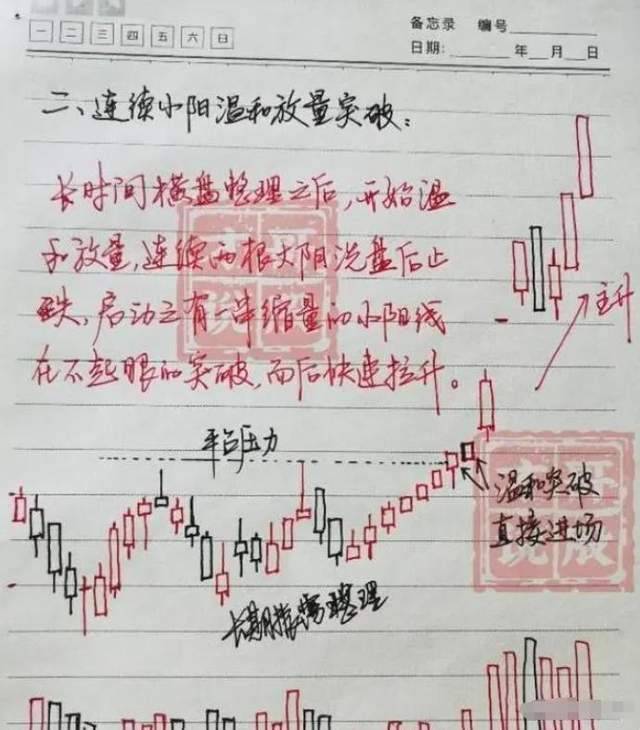 备忘录 编号
一 二 三 四 五 六 日
日期: 年 月 日
二、连续小阳温和放量突破:
长时间横盘整理之后,开始温
和放量,连续两根大阳洗盘后止
跌,启动之有一串缩量的小阳线
在不起眼的突破,而后快速拉升。
主升
平台压力
温和突破
直接进场
长期横盘整理